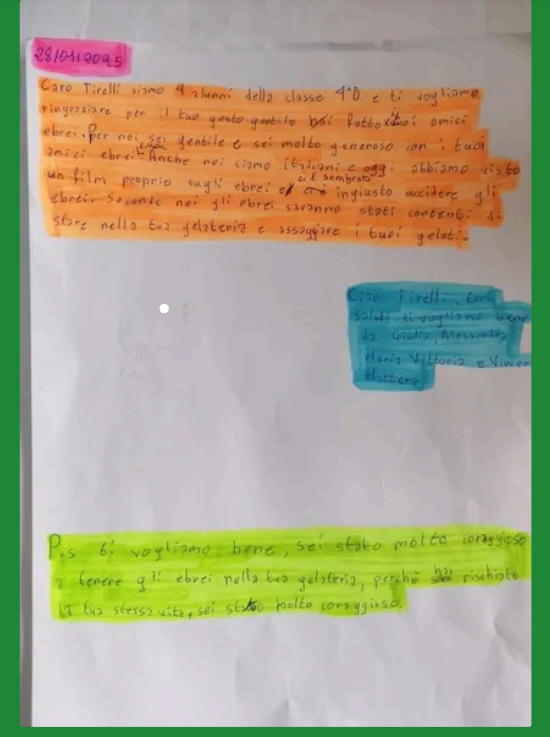 28/01/2025
Caro Tirelli siamo 4 alunni della classe 4ªD e ti vogliamo
ringraziare per il tuo gesto gentile hai fatto ai tuoi amici
ebrei. Per noi sei gentile e sei molto generoso con i tuoi
amici ebrei. Anche noi siamo italiani e oggi abbiamo visto
un film proprio sugli ebrei e ci è sembrato ingiusto uccidere gli
ebrei. Secondo noi gli ebrei saranno stati contenti di
stare nella tua gelateria e assaggiare i tuoi gelati.
Ciao Tirelli, Cari
saluti ti vogliamo bene
da Giulia, Alessandra
Maria Vittoria e Vincen
P.s ti vogliamo bene, sei stato molto coraggioso
a tenere gli ebrei nella tua gelateria, perché hai rischiato
la tua stessa vita, sei stato molto coraggioso.